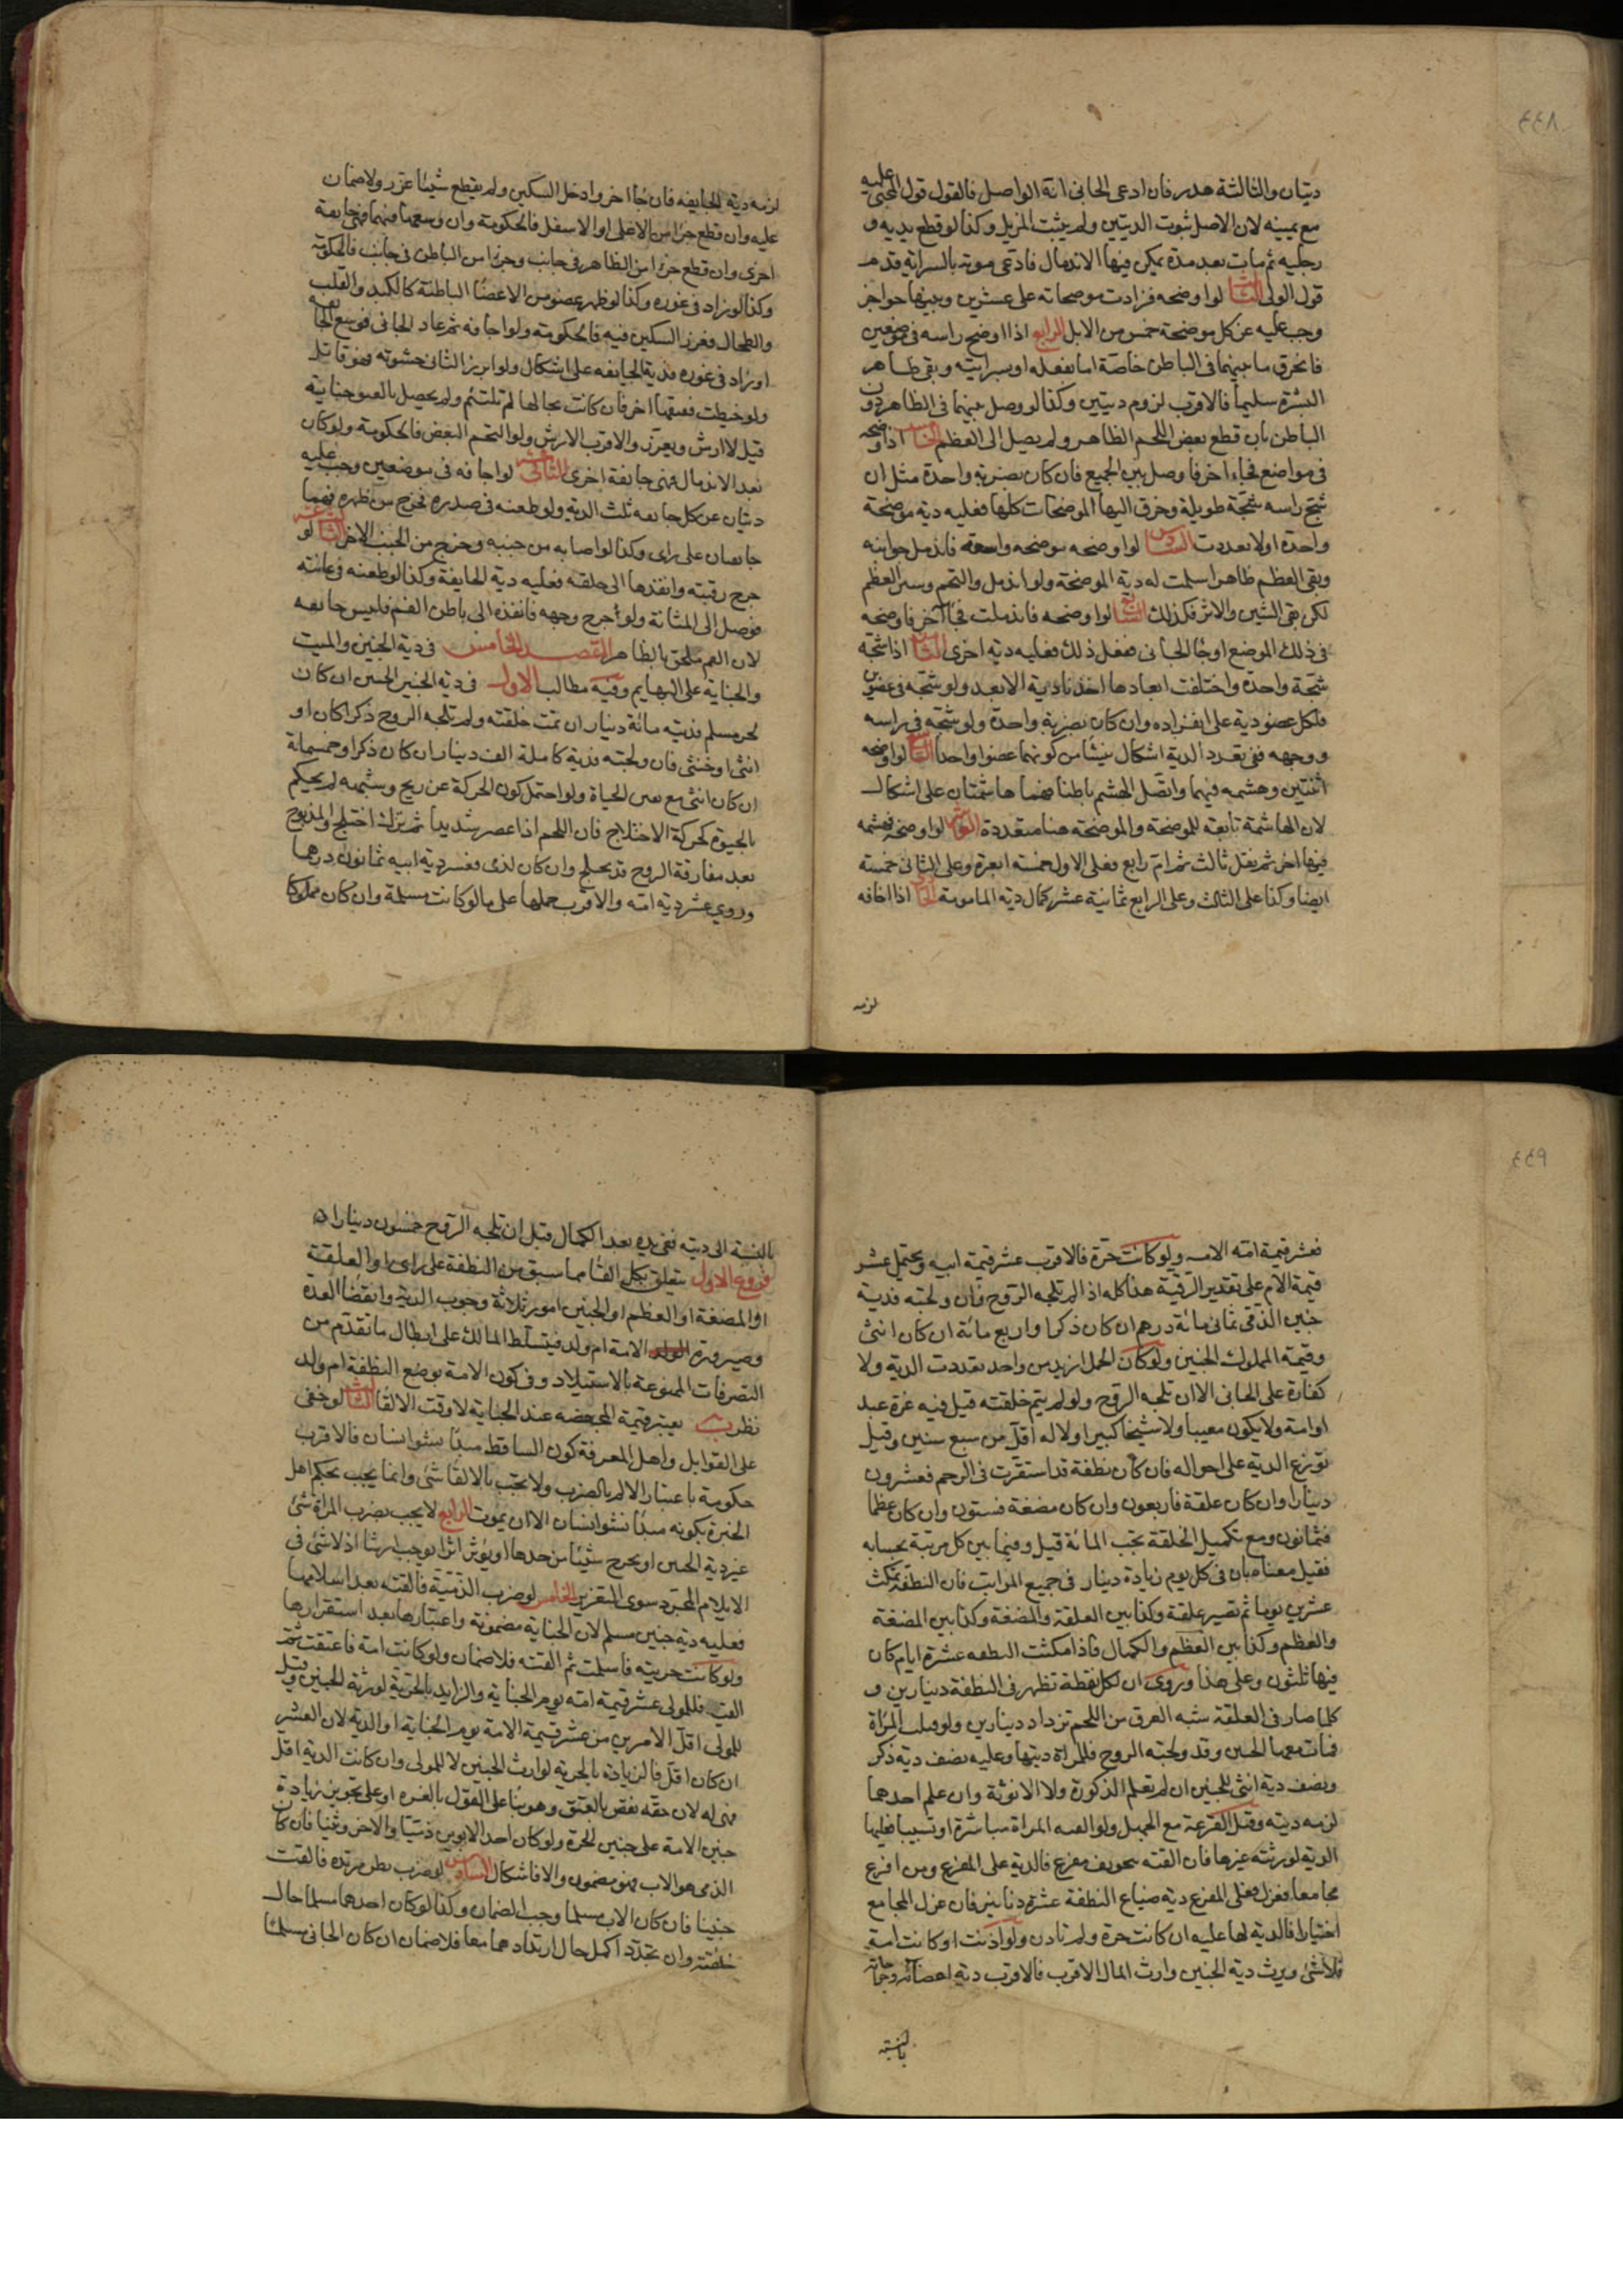 ديتان والثالثة هدر فان ادعى الجانى انه الواصل فالقول قول المجنى عليه
مع يمينه لان الاصل ثبوت الديتين ولم يثبت المزيل وكذا لو قطع يديه و
رجليه ثم مات بعد مدة يمكن فيها الاندمال فادعى موته بالسراية قدم
قول الولى الثالث لو اوضحه فزادت موضحاته على عشرين وبينها حواجز
وجب عليه عن كل موضحة خمس من الابل الرابع اذا اوضح راسه فى موضعين
فانخرق ما بينهما فى الباطن خاصة اما بفعله او بسرايته وبقى ظاهر
البشرة سليما فالاقرب لزوم ديتين وكذا لو وصل بينهما فى الظاهر دون
الباطن بان قطع بعض اللحم الظاهر ولم يصل الى العظم الخامس اذا اوضحه
فى مواضع فجاء اخر فاوصل بين الجميع فان كان بضربة واحدة مثل ان
شج راسه شجة طويلة وخرق اليها الموضحات كلها فعليه دية موضحة
واحدة اولا تعددت السادس لو اوضحه موضحه واسعة فاندمل جوانبه
وبقى العظم ظاهرا سلمت له دية الموضحة ولو اندمل والتحم وستر العظم
لكن بقى الشين والاثر فكذلك السابع لو اوضحه فاندملت فجاء آخر فاوضحه
فى ذلك الموضع او جاء الجانى ففعل ذلك فعليه دية اخرى الثامن اذا شجه
شجة واحدة واختلفت ابعادها اخذنا دية الابعد ولو شجه فى عضوين
فلكل عضو دية على انفراده وان كان بضربة واحدة ولو شجه فى راسه
ووجهه ففى تعدد الدية اشكال ينشا من كونهما عضوا واحدا التاسع لو اوضحه
اثنتين وهشمه فيهما واتصل الهشم باطنا فهما هاشمتان على اشكال
لان الهاشمة تابعة للموضحة والموضحة هنا متعددة العاشر لو اوضحه فهشمه
فيها اخر ثم نقل ثالث ثم ام رابع فعلى الاول خمسة ابعرة وعلى الثانى خمسة
ايضا وكذا على الثالث وعلى الرابع ثمانية عشر كمال دية المامومة الحادى اذا اجافه
لزمه
لزمه دية الجايفه فان جاء اخر وادخل السكين ولم يقطع شيئا عزر ولا ضمان
عليه وان قطع جزا من الاعلى او الاسفل فالحكومة وان وسعها فيهما فهى جايفة
اخرى وان قطع جزءا من الظاهر فى جانب وجزءا من الباطن فى جانب فالحكومة
وكذا لو زاد فى غوره وكذا لو ظهر عضو من الاعضا الباطنة كالكبد والقلب
والطحال فغرز السكين فيه فالحكومة ولو اجافه ثم عاد الجانى فوسع الجايفه
او زاد فى غوره فدية الجايفه على اشكال ولو ابرز الثانى حشوته فهو قاتل
ولو خيطت ففتقها اخر فان كانت بحالها لم تلتئم ولم يحصل بالفتق جناية
قيل لا ارش ويعزر والاقرب الارش ولو التحم البعض فالحكومة ولو كان
بعد الاندمال فهى جايفة اخرى الثانى عشر لو اجافه فى موضعين وجب عليه
ديتان عن كل جايفه ثلث الدية ولو طعنه فى صدره فخرج من ظهره فهما
جايفتان على راى وكذا لو اصابه من جنبه وخرج من الجنب الاخر الثالث عشر لو
جرح رقبته وانفذها الى حلقه فعليه دية الجايفة وكذا لو طعنه فى عانته
فوصل الى المثانة ولو اجرح وجهه فانفذه الى باطن الفم فليس جايفه
لان الفم ملحق بالظاهر المقصد الخامس فى دية الجنين والميت
والجناية على البهايم وفيه مطالب الاول فى دية الجنين الجنين ان كان
لحر مسلم فديته مائة دينار ان تمت خلقته ولم تلجه الروح ذكرا كان او
انثى او خنثى فان ولجته فدية كاملة الف دينار ان كان ذكرا وخمسمائة
ان كان انثى مع تيقن الحياة ولو احتمل كون الحركة عن ريح وشبهه لم يحكم
بالحيوة كحركة الاختلاج فان اللحم اذا عصر شديدا ثم ترك اختلج والمذبوح
بعد مفارقة الروح قد يختلج وان كان لذمى فعشر دية ابيه ثمانون درهما
وروى عشر دية امه والاقرب حملها على ما لو كانت مسلمة وان كان مملوكا
فعشر قيمة امه الامه ولو كانت حرة فالاقرب عشر قيمة ابيه ويحتمل عشر
قيمة الام على تقدير الرقية هذا كله اذا لم تلجه الروح فان ولجته فدية
جنين الذمى ثمانى مائة درهم ان كان ذكرا واربع مائة ان كان انثى
وقيمة المملوك الجنين ولو كان الحمل ازيد من واحد تعددت الدية ولا
كفارة على الجانى الا ان تلجه الروح ولو لم يتم خلقته قيل فيه غرة عبد
او امة ولا يكون معيبا ولا شيخا كبيرا ولا له اقل من سبع سنين وقيل
توزع الدية على احواله فان كان نطفة قد استقرت فى الرحم فعشرون
دينارا وان كان علقة فاربعون وان كان مضغة فستون وان كان عظما
فثمانون ومع تكميل الخلقة تجب المائة قيل وفيما بين كل مرتبة بحسابه
فقيل معناه بان فى كل يوم زيادة دينار فى جميع المراتب فان النطفة تمكث
عشرين يوما ثم تصير علقة وكذا بين العلقة والمضغة وكذا بين المضغة
والعظم وكذا بين العظم والكمال فاذا مكثت النطفه عشرة ايام كان
فيها ثلثون وعلى هذا وروى ان لكل نقطة تظهر فى النطفة دينارين و
كلما صار فى العلقة شبه العرق من اللحم تزداد دينارين ولو قتلت المراة
فمات معها الجنين وقد ولجته الروح فللمراة ديتها وعليه نصف دية ذكر
ونصف دية انثى للجنين ان لم تعلم الذكورة ولا الانوثة وان علم احدهما
لزمه ديته وقيل القرعة مع الجهل ولو القته المراة مباشرة او تسبيبا فعليها
الدية لورثته غيرها فان القته بتخويف مفزع فالدية على المفزع ومن افزع
مجامعا فعزل فعلى المفزع دية ضياع النطفة عشرة دنانير فان عزل المجامع
اختيارا فالدية لها عليه ان كانت حرة ولم تاذن ولو اذنت او كانت امة
فلا شئ ويرث دية الجنين وارث المال الاقرب فالاقرب دية اعضائه وجراحاته
بالنسبة
بالنسبة الى ديته ففى يده بعد الكمال قبل ان تلجه الروح خمسون دينارا
فروع الاول يتعلق بكل القاء مما سبق من النطفة على راى او العلقة
او المضغة او العظم او الجنين امور ثلاثة وجوب الدية وانقضا العدة
وصيرورة الامة ام ولد فيتسلط المالك على ابطال ما تقدم من
التصرفات الممنوعة بالاستيلاد وفى كون الامة بوضع النطفة ام ولد
نظر ب يعتبر قيمة المجهضه عند الجناية لا وقت الالقا الثالث لو خفى
على القوابل واهل المعرفة كون الساقط مبدا نشو انسان فالاقرب
حكومة باعتبار الالم بالضرب ولا يجب بالالقا شئ وانما يجب بحكم اهل
الخبرة بكونه مبدا نشو انسان الا ان يموت الرابع لا يجب بضرب المراة شئ
غير دية الجنين او يجرح شيئا من جسدها او يؤثر اثرا يوجب ارشا اذ لا شئ فى
الايلام المجرد سوى التعزير الخامس لو ضرب الذمية فالقته بعد اسلامها
فعليه دية جنين مسلم لان الجناية مضمونة واعتبارها بعد استقرارها
ولو كانت حربية فاسلمت ثم القته فلا ضمان ولو كانت امة فاعتقت ثم
القته فللمولى عشر قيمة امه يوم الجناية والزايد بالحرية لورثة الجنين وقيل
للمولى اقل الامرين من عشر قيمة الامة يوم الجناية او الدية لان العشر
ان كان اقل فالزيادة بالحرية لوارث الجنين لا للمولى وان كانت الدية اقل
فهى له لان حقه نقص بالعتق وهو بناء على القول بالغرة او على تجويز زيادة
جنين الامة على جنين الحرة ولو كان احد الابوين ذميا والاخر وثنيا فان كان
الذمى هو الاب فهو مضمون والا فاشكال السادس لو ضرب بطن مرتدة فالقت
جنينا فان كان الاب مسلما وجب الضمان وكذا لو كان احدهما مسلما حال
خلقته وان تجدد اكمل حال ارتدادهما معا فلا ضمان ان كان الجانى مسلما